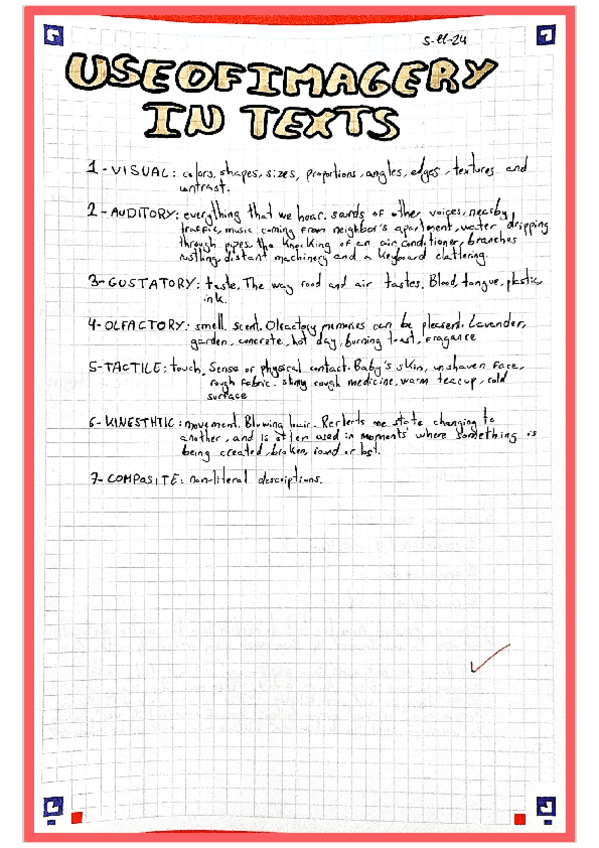 5-11-24
USE OF IMAGERY
IN TEXTS
1-VISUAL: colors, shapes, sizes, proportions, angles, edges, textures and
contrast.
2-AUDITORY: everything that we hear. sounds of other voices, nearby
traffic, music coming from neighbor's apartment, water dripping
through pipes, the knocking of an air conditioner, branches
rustling, distant machinery and a keyboard clattering.
3-GUSTATORY: taste. The way food and air tastes. Blood, tongue, plastic,
ink.
4-OLFACTORY: smell. scent. Olfactory memories can be pleasent. Lavender,
garden, concrete, hot day, burning toast, fragance
5-TACTILE: touch. Sense of physical contact. Baby's skin, unshaven face,
rough fabric. slimy cough medicine, warm teacup, cold
surface
6-KINESTHTIC: movement. Blowing hair. Reflects state changing to
another, and is often used in moments where something is
being created, broken, found or lost.
7-COMPOSITE: non-literal descriptions.